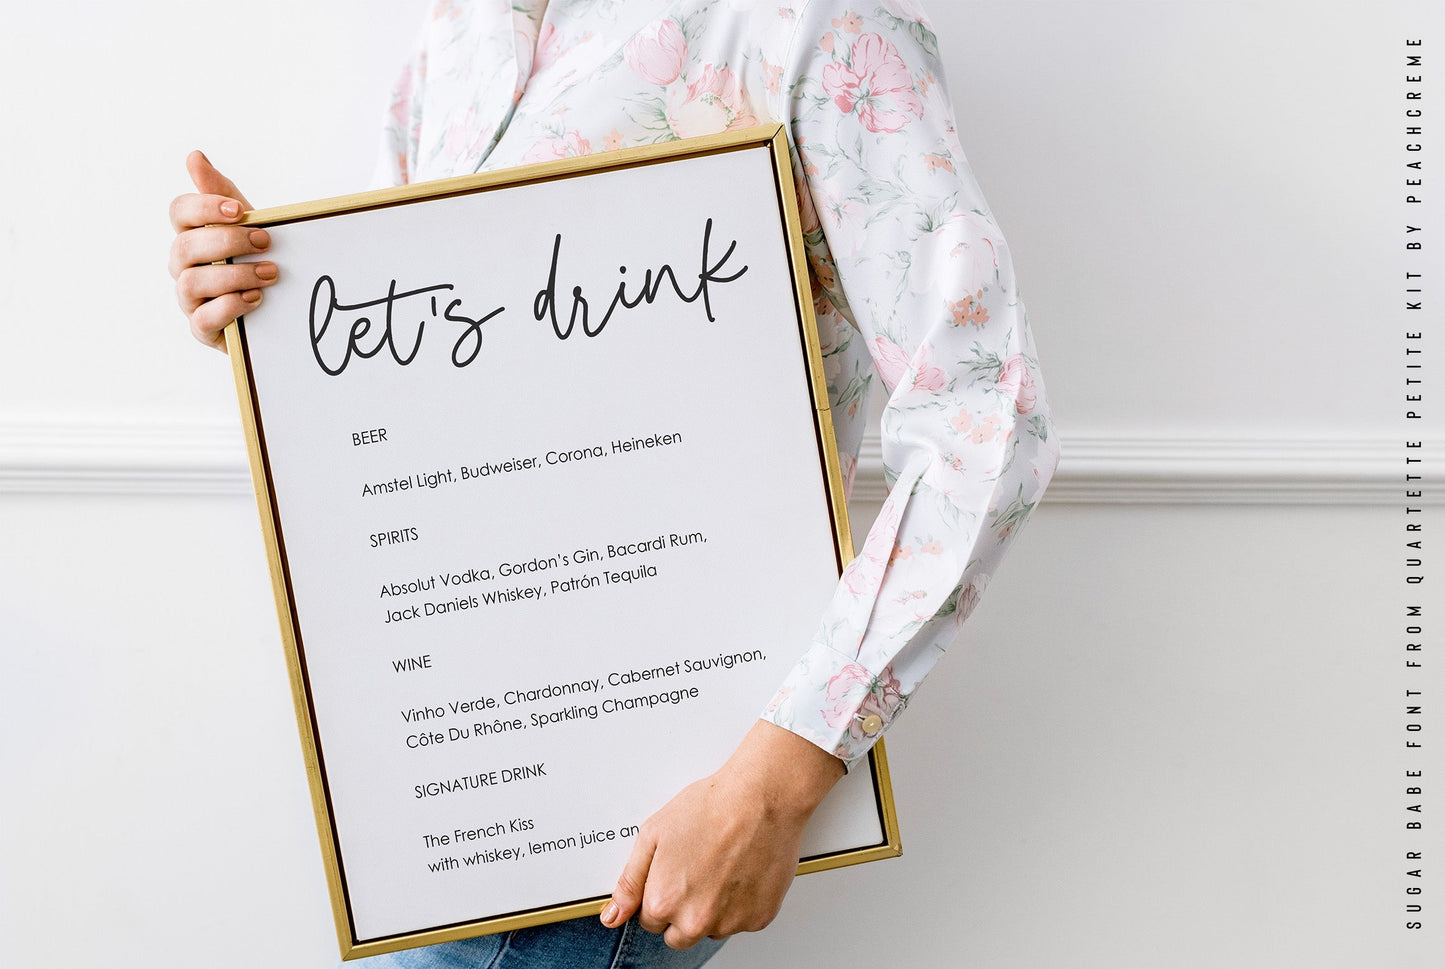 let's drink
BEER
Amstel Light, Budweiser, Corona, Heineken
SPIRITS
Absolut Vodka, Gordon’s Gin, Bacardi Rum,
Jack Daniels Whiskey, Patrón Tequila
WINE
Vinho Verde, Chardonnay, Cabernet Sauvignon,
Côte Du Rhône, Sparkling Champagne
SIGNATURE DRINK
The French Kiss
with whiskey, lemon juice an
SUGAR BABE FONT FROM QUARTETTE PETITE KIT BY PEACHCREME